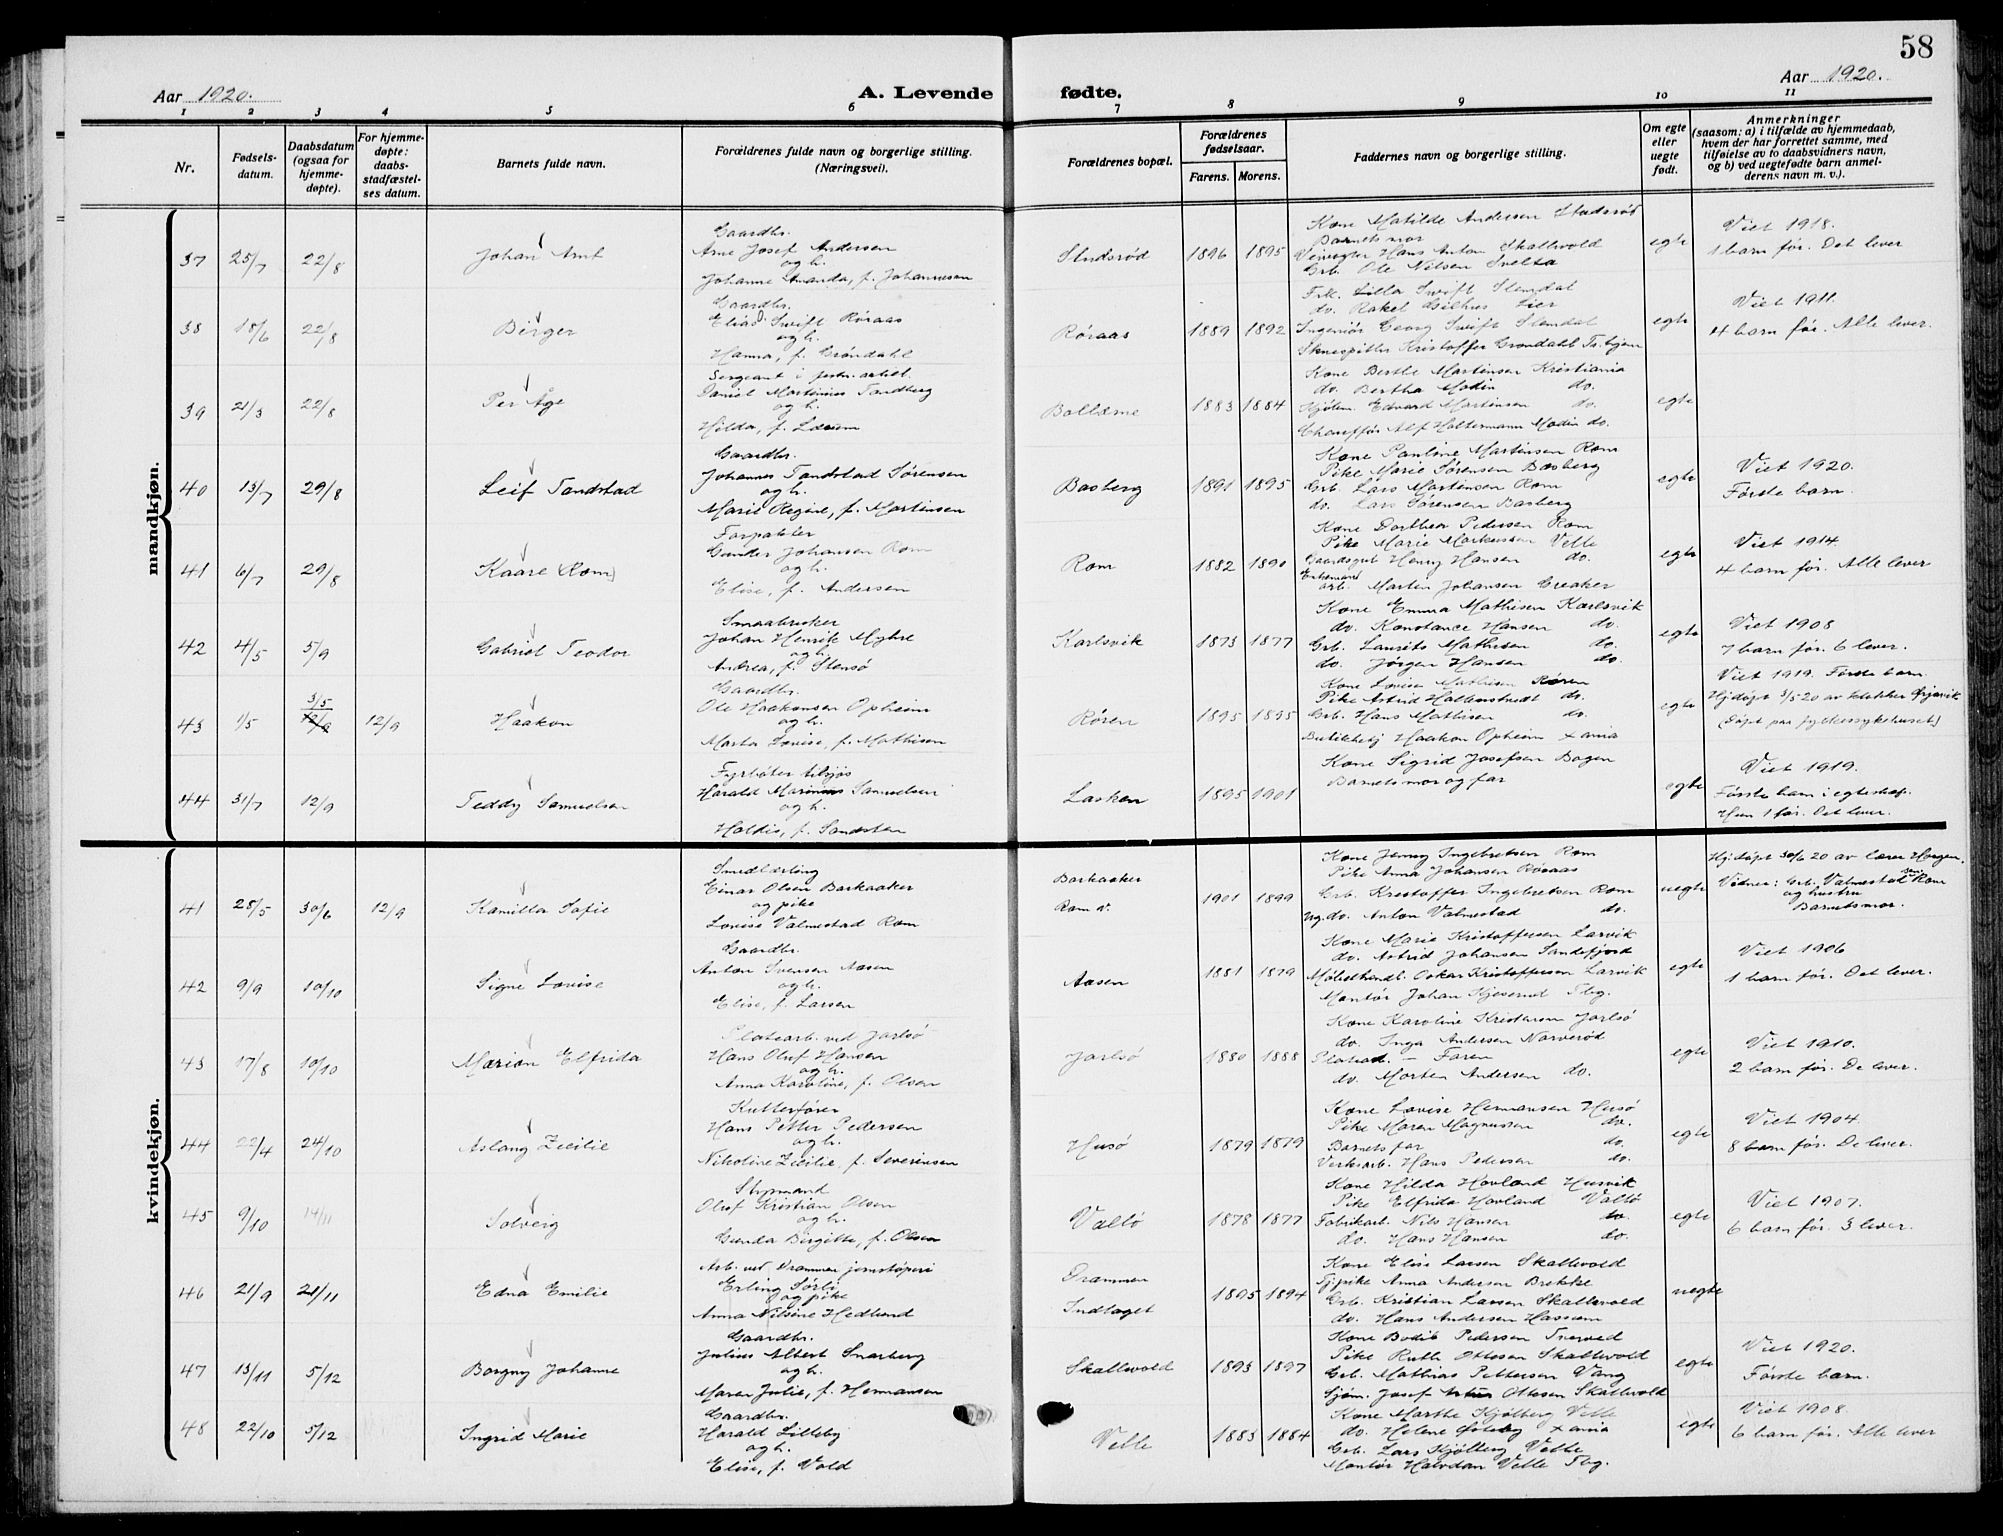 58
Aar 1920.
A. Levende fødte.
Aar 1920.
1 2 3 4 5 6 7 8 9 10 11
Nr.
Fødsels-
datum.
Daabsdatum
(ogsaa for
hjemme-
døpte).
For hjemme-
døpte:
daabs-
stadfæstel-
ses datum.
Barnets fulde navn.
Forældrenes fulde navn og borgerlige stilling.
(Næringsvei).
Forældrenes bopæl.
Forældrenes
fødselsaar.
Farens. Morens.
Faddernes navn og borgerlige stilling.
Om egte
eller
uegte
født.
Anmerkninger
(saasom: a) i tilfælde av hjemmedaab,
hvem der har forrettet samme, med
tilføielse av to daabsvidners navn,
og b) ved uegtefødte barn anmel-
derens navn m. v.).
mandkjøn.
37 25/7 22/8 Johan Arnt
Gaardbr.
Arne Josef Andersen
og h.
Johanne Amanda, f. Johannesen
Sludsrød 1896 1895
Kone Matilde Andersen
Barnets mor
Hans Anton Skallevold
Grb. Ole Nilsen Svelta
egte
Viet 1918.
1 barn før. Det lever
38 18/6 22/8 Birger
Gaardbr.
Elias Swift Røraas
og h.
Hanna, f. Grøndahl
Røraas 1889 1892
Frk. Lilla Swift Slemdal
do. Rakel Lier
Ingeniør Georg Swift Slemdal
Kristoffer Grøndahl
egte
Viet 1911.
4 barn før. Alle lever.
39 21/3 22/8 Per Åge
Sergeant i
Daniel Martinius Tandberg
og h.
Hilda, f.
Bollærne 1883 1884
Kone Berthe Martinsen Kristiania
do. Bertha Modin do.
Edvard Martinsen do.
Chauffør Alf Holtermann Modin do.
egte
40 13/7 29/8 Leif Tandstad
Gaardbr.
Johannes Tandstad Sørensen
og h.
Marie Regine, f. Martinsen
Basberg 1891 1895
Kone Pauline Martinsen Rom
Pike Marie Sørensen Basberg
Grb. Lars Martinsen Rom
do. Lars Sørensen Basberg
egte
Viet 1920.
Første barn.
41 6/7 29/8 Kaare (Rom)
Forpakter
Gunder Johansen Rom
og h.
Elise, f. Andersen
Rom 1882 1890
Kone Dorthea Pedersen Rom
Pike Marie Markussen Velle
Gaardsgut Henry Hansen do.
Enkemand
arb. Martin Johansen Greaker
egte
Viet 1914.
4 barn før. Alle lever
42 4/5 5/9 Gabriel Teodor
Smaabruker
Johan Henrik Myhre
og h.
Andrea, f. Stensø
Karlsvik 1873 1877
Kone Emma Mathisen Karlsvik
do. Konstance Hansen do.
Grb. Laurits Mathisen do.
do. Jørgen Hansen do.
egte
Viet 1908
7 barn før. 6 lever.
43 1/5 3/5 12/9 12/9 Haakon
Gaardbr.
Ole Haakonsen Opheim
og h.
Marta Lovise, f. Mathisen
Røren 1895 1895
Kone Lovise Mathisen Røren
Pike Astrid do.
Grb. Hans Mathisen do.
Haakon Opheim
egte
Viet 1919. Første barn.
Hj.døpt 3/5 20 av
(Døpt paa fylkessykehuset)
44 31/7 12/9 Teddy Samuelsen
Fyrbøter tilsjøs
Harald Marinius Samuelsen
og h.
Haldis, f. Sandsten
Lasken 1895 1901
Kone Sigrid Josefsen Bogen
Barnets mor og far
egte
Viet 1919.
Første barn i egteskap.
Hun 1 før. Det lever.
kvindekjøn.
41 28/5 30/6 12/9 Kamilla Sofie
Smedlærling
Einar Olsen Barkaaker
og pike
Lovise Valmestad Rom
Barkaaker
Rom v.
1901 1899
Kone Jenny Ingebretsen Rom
Pike Anna Johansen Røraas
Grb. Kristoffer Ingebretsen Rom
Ug. do. Anton Valmestad do.
uegte
Hj.døpt 30/6 20 av lærer Horgen.
Vidner: Grb. Valmestad Rom
og hustru
Barnets mor.
42 9/9 10/10 Signe Lovise
Gaardbr.
Anton Svensen Aasen
og h.
Elise, f. Larsen
Aasen 1881 1879
Kone Marie Kristoffersen Larvik
do. Astrid Johansen Sandefjord
Møbelhandl. Oskar Kristoffersen Larvik
Montør Johan Tbg.
egte
Viet 1906
1 barn før. Det lever.
43 17/8 10/10 Marion Elfrida
Platearb. ved Jarlsø
Hans Oluf Hansen
og h.
Anna Karoline, f. Olsen
Jarlsø 1880 1888
Kone Karoline Kristensen Jarlsø
do. Inga Andersen Narverød
Platearb. - Faren
do. Morten Andersen do.
egte
Viet 1910.
2 barn før. De lever.
44 22/4 24/10 Aslaug Zecilie
Kutterfører
Hans Petter Pedersen
og h.
Nikoline Zecilie, f. Severinsen
Husø 1879 1879
Kone Lovise Hermansen Husø
Pike Maren Magnussen do.
Barnets far do.
Verksarb. Hans Pedersen do.
egte
Viet 1904.
8 barn før. De lever.
45 9/10 14/11 Solveig
Styrmand
Oluf Kristian Olsen
og h.
Gunda Birgitte, f. Olsen
Vallø 1878 1877
Kone Hilda Hovland Husvik
Pike Elfrida Hovland Vallø
Fabrikarb. Nils Hansen do.
do. Hans Hansen do.
egte
Viet 1907.
6 barn før. 3 lever.
46 21/9 21/11 Edna Emilie
Arb. ved Drammen jernstøperi
Erling Sørli
og pike
Anna Nilsine Hedlund
Drammen
Indlaget
1895 1894
Kone Elise Larsen Skallevold
Tj.pike Anna Andersen Brekke
Grb. Kristian Larsen Skallevold
do. Hans Andersen Hassum
uegte
47 13/11 5/12 Borgny Johanne
Gaardbr.
Julius Albert Snarberg
og h.
Maren Julie, f. Hermansen
Skallevold 1893 1897
Kone Bodil Pedersen Tveved
Pike Ruth Ottesen Skallevold
Grb. Mathias Pettersen Vang
Sjøm. Josef Ottesen Skallevold
egte
Viet 1920.
Første barn.
48 22/10 5/12 Ingrid Marie
Gaardbr.
Harald Lilleby
og h.
Elise, f. Vold
Velle 1883 1884
Kone Marthe Kjølberg Velle
do. Helene
Grb. Lars Kjølberg Velle
Montør Halvdan Velle Tbg.
egte
Viet 1908.
6 barn før. Alle lever